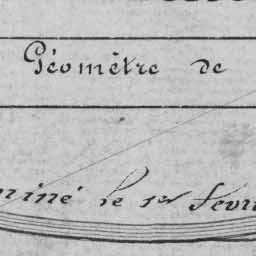 Géomètre de
miné le 1er Févri